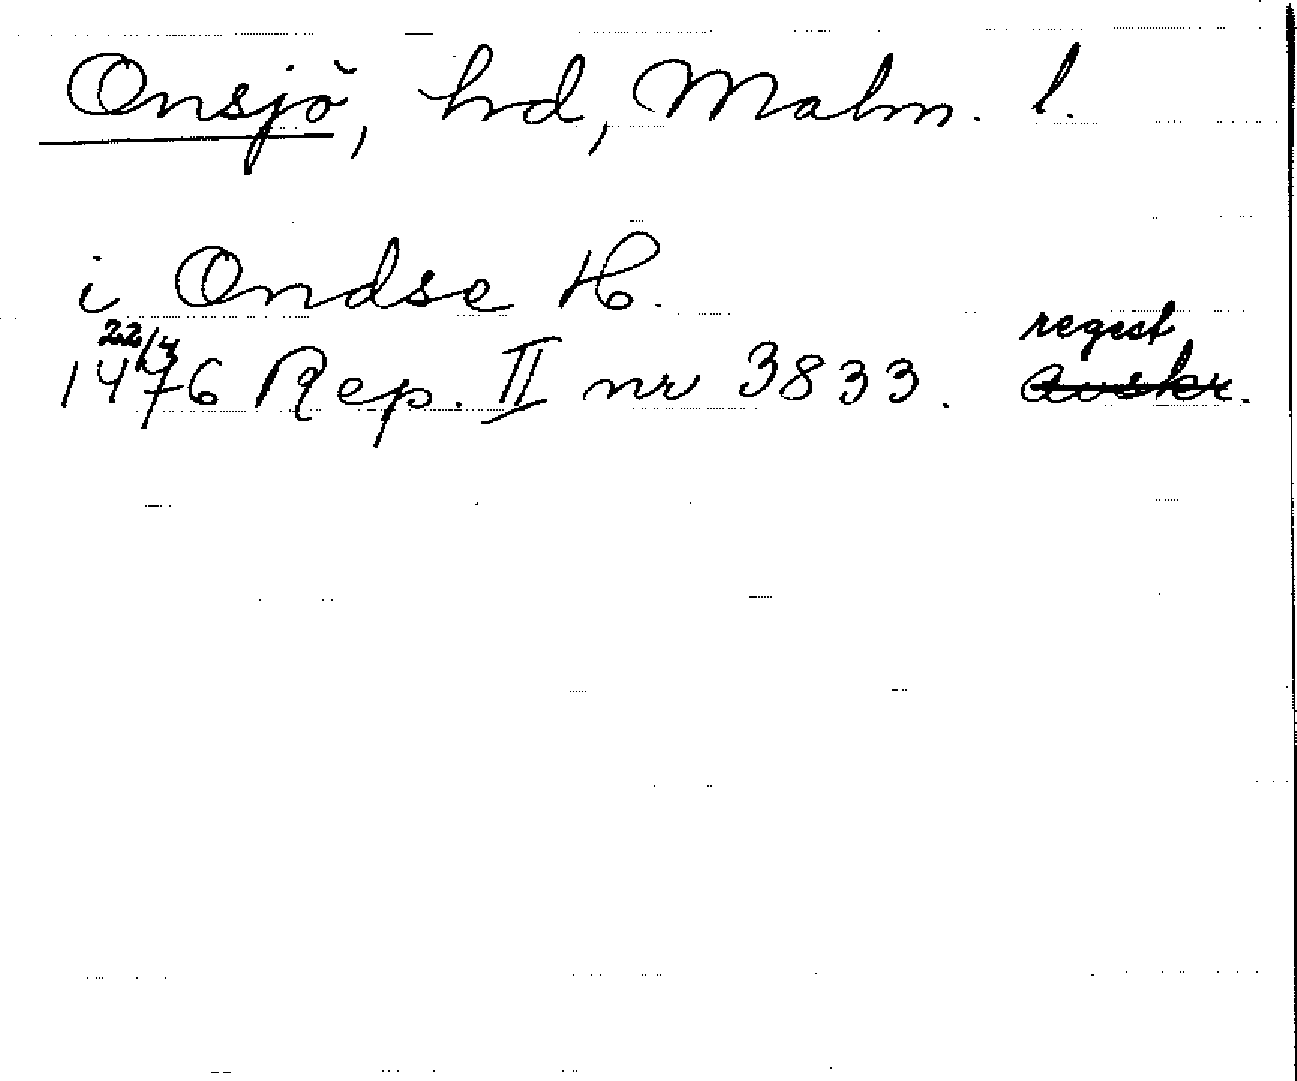 Onsjö, hd, Malm. l.
i Ondse H.
22/4 regest
1476 Rep. II nr 3833. avskr.